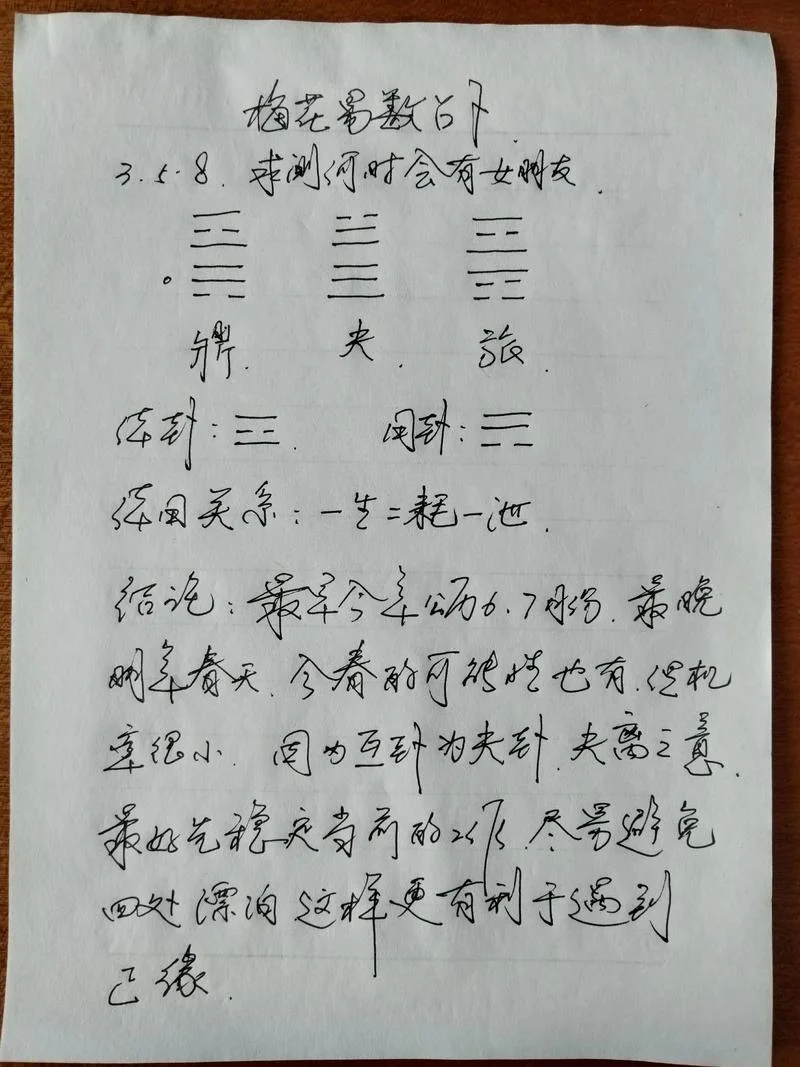 梅花易数占卜.
3.5.8. 求测何时会有女朋友.
鼎. 夬. 旅.
体卦: ☲. 用卦: ☴
体用关系: 一生二耗一泄.
结论: 最早今年公历6.7月份. 最晚
明年春天. 今春的可能性也有. 但机
率很小. 因为互卦为夬卦. 夬离之意.
最好先稳定当前的工作. 尽量避免
四处漂泊 这样更有利于遇到
正缘.